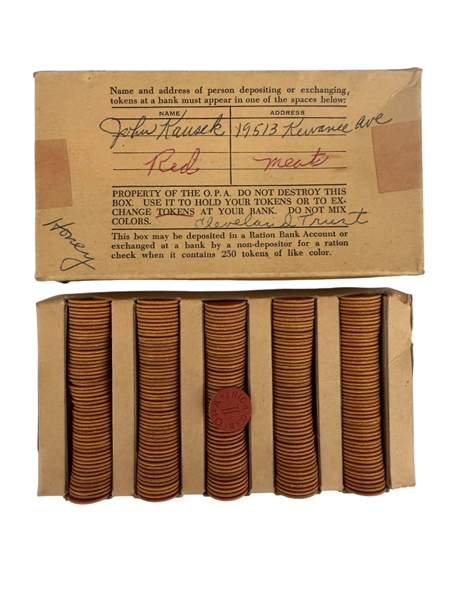 Name and address of person depositing or exchanging
tokens at a bank must appear in one of the spaces below:
NAME ADDRESS
John Kausek 19513 Kewanee Ave
Red meat
PROPERTY OF THE O.P.A. DO NOT DESTROY THIS
BOX. USE IT TO HOLD YOUR TOKENS OR TO EX-
CHANGE TOKENS AT YOUR BANK. DO NOT MIX
COLORS. Cleveland Trust
Honey
This box may be deposited in a Ration Bank Account or
exchanged at a bank by a non-depositor for a ration
check when it contains 250 tokens of like color.
OPA RED POINT
1